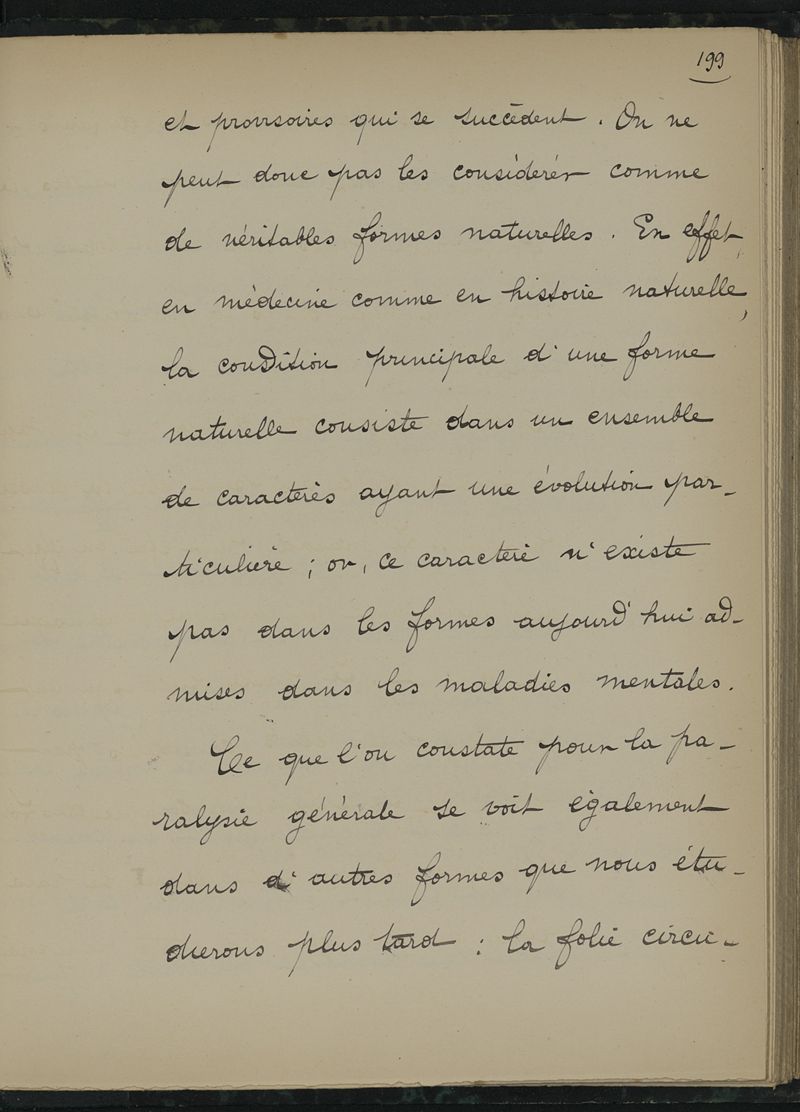 199
et provisoires qui se succèdent. On ne
peut donc pas les considérer comme
de véritables formes naturelles. En effet,
en médecine comme en histoire naturelle,
la condition principale d'une forme
naturelle consiste dans un ensemble
de caractères ayant une évolution par-
ticulière ; or, ce caractère n'existe
pas dans les formes aujourd'hui ad-
mises dans les maladies mentales.
Ce que l'on constate pour la pa-
ralysie générale se voit également
dans d'autres formes que nous étu-
dierons plus tard : la folie circu-